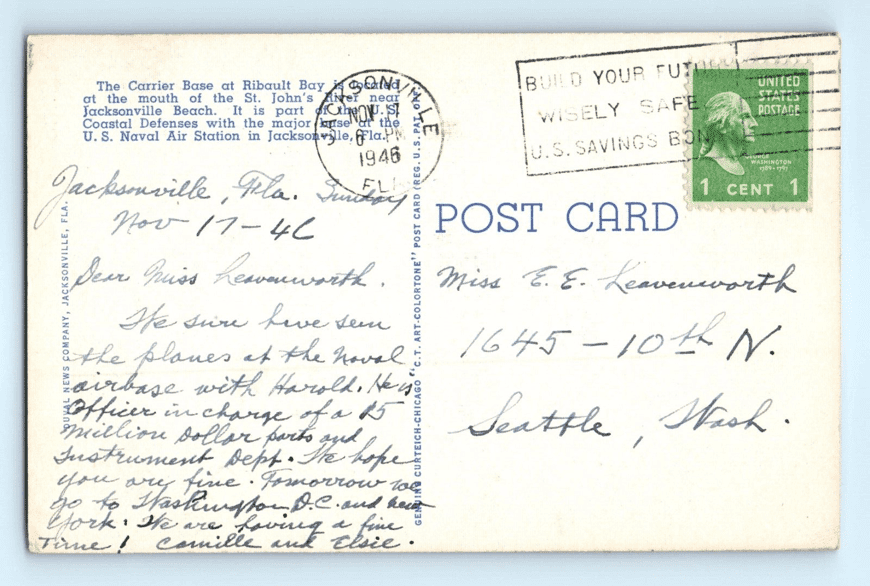 The Carrier Base at Ribault Bay is located
at the mouth of the St. John's River near
Jacksonville Beach. It is part of the U.S.
Coastal Defenses with the major base at the
U. S. Naval Air Station in Jacksonville, Fla.
JACKSONVILLE
NOV 17
6 PM
1946
FLA
BUILD YOUR FUTURE
WISELY SAFE
U.S. SAVINGS BONDS
UNITED
STATES
POSTAGE
GEORGE
WASHINGTON
1789-1797
1 CENT 1
DUVAL NEWS COMPANY, JACKSONVILLE, FLA.
GENUINE CURTEICH-CHICAGO "C.T. ART-COLORTONE" POST CARD (REG. U.S. PAT. OFF.)
POST CARD
Jacksonville, Fla. Sunday
Nov 17-46
Dear Miss Leavenworth.
We sure have seen
the planes at the Naval
airbase with Harold. He is
Officer in charge of a 25
Million Dollar parts and
Instrument Dept. We hope
you are fine. Tomorrow we
go to Washington D.C. and New
York. We are having a fine
Time! Camille and Elsie.
Miss E. E. Leavenworth
1645-10th N.
Seattle, Wash.